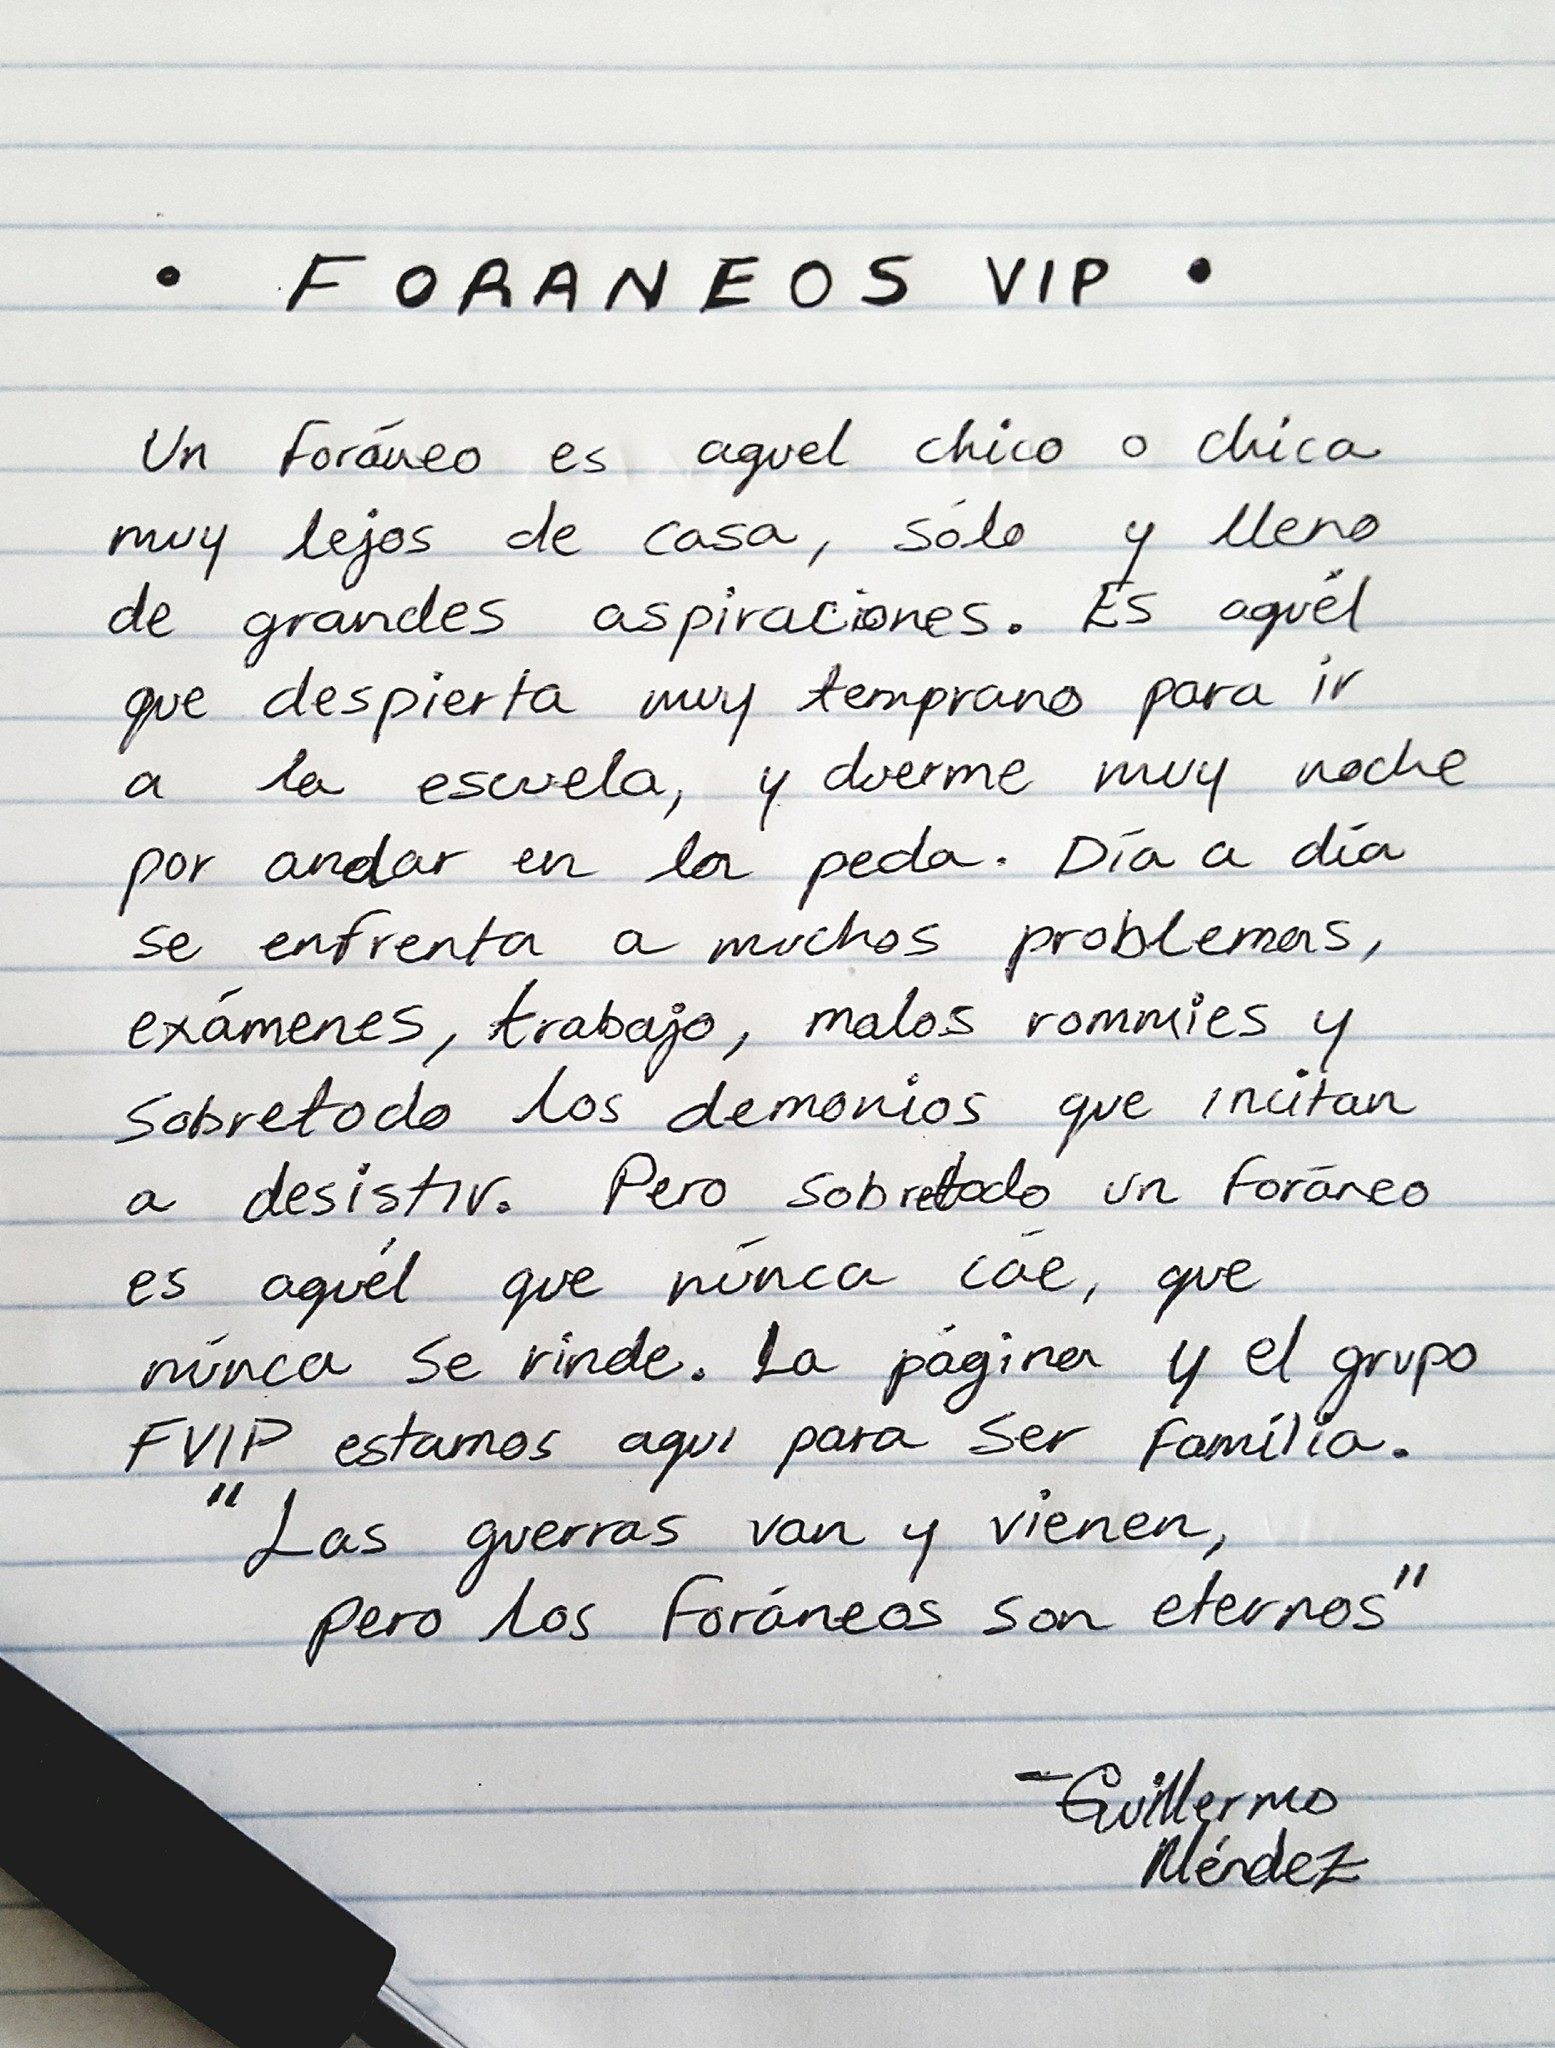 • FORANEOS VIP •
Un foráneo es aquel chico o chica
muy lejos de casa, sólo y lleno
de grandes aspiraciones. Es aquél
que despierta muy temprano para ir
a la escuela, y duerme muy noche
por andar en la peda. Día a día
se enfrenta a muchos problemas,
exámenes, trabajo, malos rommies y
sobretodo los demonios que incitan
a desistir. Pero sobretodo un foráneo
es aquél que núnca cáe, que
núnca se rinde. La página y el grupo
FVIP estamos aqui para ser família.
"Las guerras van y vienen,
pero los foráneos son eternos"
-Guillermo
Méndez